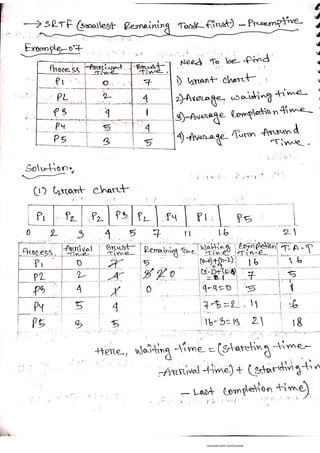 → SRTF (smallest Remaining Task first) - Preemptive
Example-07
Process Arrival Time Brust Time
P1 0 7
P2 2 4
P3 4 1
P4 5 4
P5 3 5
Need To be find
1) Grant chart
2) Average, waiting time
3) Average Completion time
4) Average Turn Around Time
Solution:
(1) Grant chart
P1 P2 P2 P3 P2 P4 P1 P5
0 2 3 4 5 7 11 16 21
Process Arrival Time Brust Time Remaining Time Waiting Time Completion Time T.A.T
P1 0 7 5 16 16
P2 2 4 0 7 5
P3 4 1 0 4-4=0 5 1
P4 5 4 7-5=2 11 6
P5 3 5 16-3=13 21 18
Here, Waiting time = (Starting time -
Arrival time) + (Starting tim
- Last Completion time)
Scanned with CamScanner